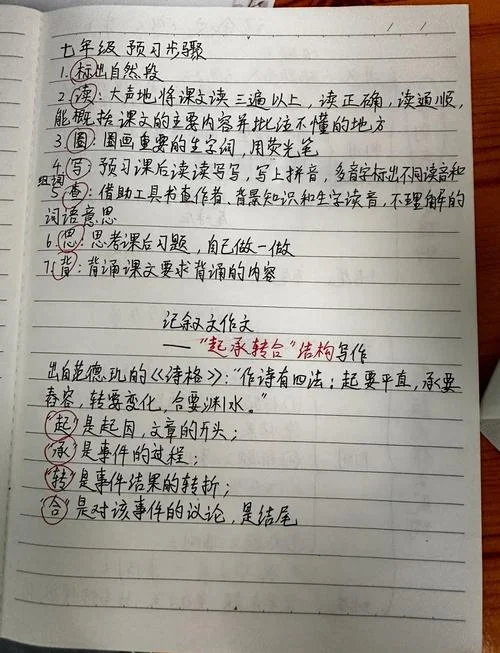 七年级 预习步骤
1. 标出自然段
2. 读：大声地将课文读三遍以上，读正确，读通顺，
能概括课文的主要内容并批注不懂的地方
3. 圈：圈画重要的生字词，用荧光笔
4. 写：预习课后读读写写，写上拼音，多音字标出不同读音和
组词
5. 查：借助工具书查作者、背景知识和生字读音，不理解的
词语意思
6. 思：思考课后习题，自己做一做
7. 背：背诵课文要求背诵的内容
记叙文作文
——“起承转合”结构写作
出自范德玑的《诗格》：“作诗有四法：起要平直，承要
舂容，转要变化，合要渊水。”
“起”是起因，文章的开头；
“承”是事件的过程；
“转”是事件结果的转折；
“合”是对该事件的议论，是结尾